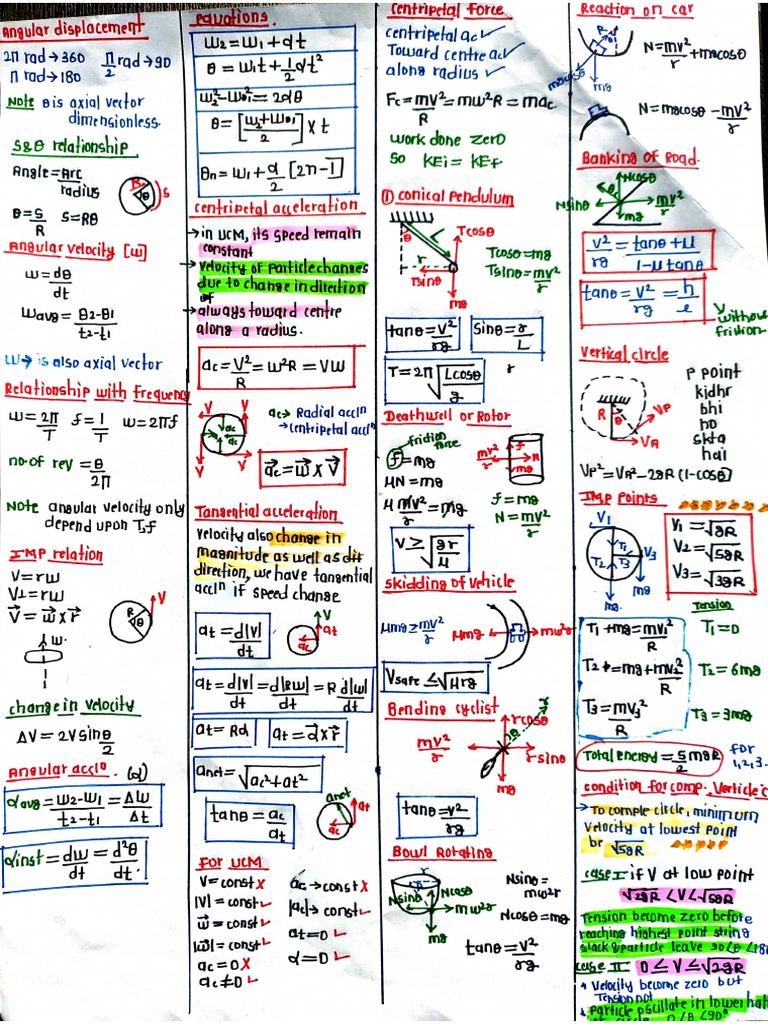 Angular displacement
2π rad → 360 π/2 rad → 90
π rad → 180
Note θ is axial vector
dimensionless.
S & θ relationship
Angle = Arc/radius
R θ S
θ = S/R S = Rθ
Angular velocity [ω]
ω = dθ/dt
ωavg = θ2-θ1/t2-t1
ω → is also axial vector
Relationship with frequency
ω = 2π/T f = 1/T ω = 2πf
no. of rev = θ/2π
Note angular velocity only
depend upon T,f
IMP relation
V = rω
V⊥ = rω
V⃗ = ω⃗ × r⃗
R θ V
ω
change in velocity
ΔV = 2V sin θ/2
Angular accln. (α)
αavg = ω2-ω1/t2-t1 = Δω/Δt
αinst = dω/dt = d²θ/dt.
equations.
ω2 = ω1 + αt
θ = ω1t + 1/2 αt²
ω2² - ω1² = 2αθ
θ = [ω2+ω1/2] × t
θn = ω1 + α/2 [2n-1]
centripetal acceleration
→ in UCM, its speed remain
constant
→ velocity of particle changes
due to change in direction
of
→ always toward centre
along a radius.
ac = V²/R = ω²R = Vω
V V V V ac ac
ac → Radial accln
→ centripetal accln
a⃗c = ω⃗ × V⃗
Tangential acceleration
velocity also change in
magnitude as well as dir
direction, we have tangential
accln if speed change
at = d|V|/dt
V at ac
at = d|V|/dt = d|Rω|/dt = R d|ω|/dt
at = Rα at = α⃗ × r⃗
anet = √ac²+at²
tanθ = ac/at
anet at ac
For UCM
V = const x ac → const x
|V| = const ✓ |ac| → const ✓
ω⃗ = const ✓ at = 0 ✓
|ω| = const ✓ α = 0 ✓
ac = 0 x
ac ≠ 0 ✓
centripetal force
centripetal ac ✓
Toward centre ac ✓
along radius ✓
Fc = mV²/R = mω²R = mac
work done zero
so KEi = KEf
① conical pendulum
θ L Tcosθ r Tsinθ mg
Tcosθ = mg
Tsinθ = mv²/r
tanθ = v²/rg sinθ = r/L
T = 2π √Lcosθ/g r
Deathwell or Rotor
friction force
f = mg
μN = mg
μ mv²/r = mg
V ≥ √gr/μ
mv²/r f N mg
f = mg
N = mv²/r
skidding of vehicle
μmg ≥ mv²/r μmg mω²r
Vsafe ≤ √μrg
Bending cyclist
mv²/r r rcosθ θ rsinθ mg
tanθ = v²/rg
Bowl Rotating
r Nsinθ Ncosθ mω²r mg
Nsinθ = mω²r
Ncosθ = mg
tanθ = v²/rg
Reaction on car
R θ mgcosθ mg
N = mv²/r + mgcosθ
N = mgcosθ - mv²/r
Banking of Road.
Ncosθ Nsinθ θ mv²/r mg
v²/rg = tanθ+μ/1-μtanθ
tanθ = v²/rg = h/l
without
friction
Vertical circle
R θ VP VA
P point
kidhr
bhi
ho
skta
hai
VP² = VA² - 2gR (1-cosθ)
IMP points
V1 T1 T2 T3 V3 mg mg.
V1 = √gR
V2 = √5gR
V3 = √3gR
Tension
T1 + mg = mv1²/R T1 = 0
T2 = mg + mv2²/R T2 = 6mg
T3 = mv3²/R T3 = 3mg
Total energy = 5/2 mgR for 1,2,3.
condition for comp. Verticle c
→ To comple circle, minimum
velocity at lowest point
be √5gR
case I if V at low point
√2gR < V < √5gR
Tension become zero before
reaching highest point string
slack & particle leave 90<θ<18
case II 0 ≤ V ≤ √2gR
→ Velocity become zero but
Tension not
→ particle oscillate in lower hal
0<θ<90°